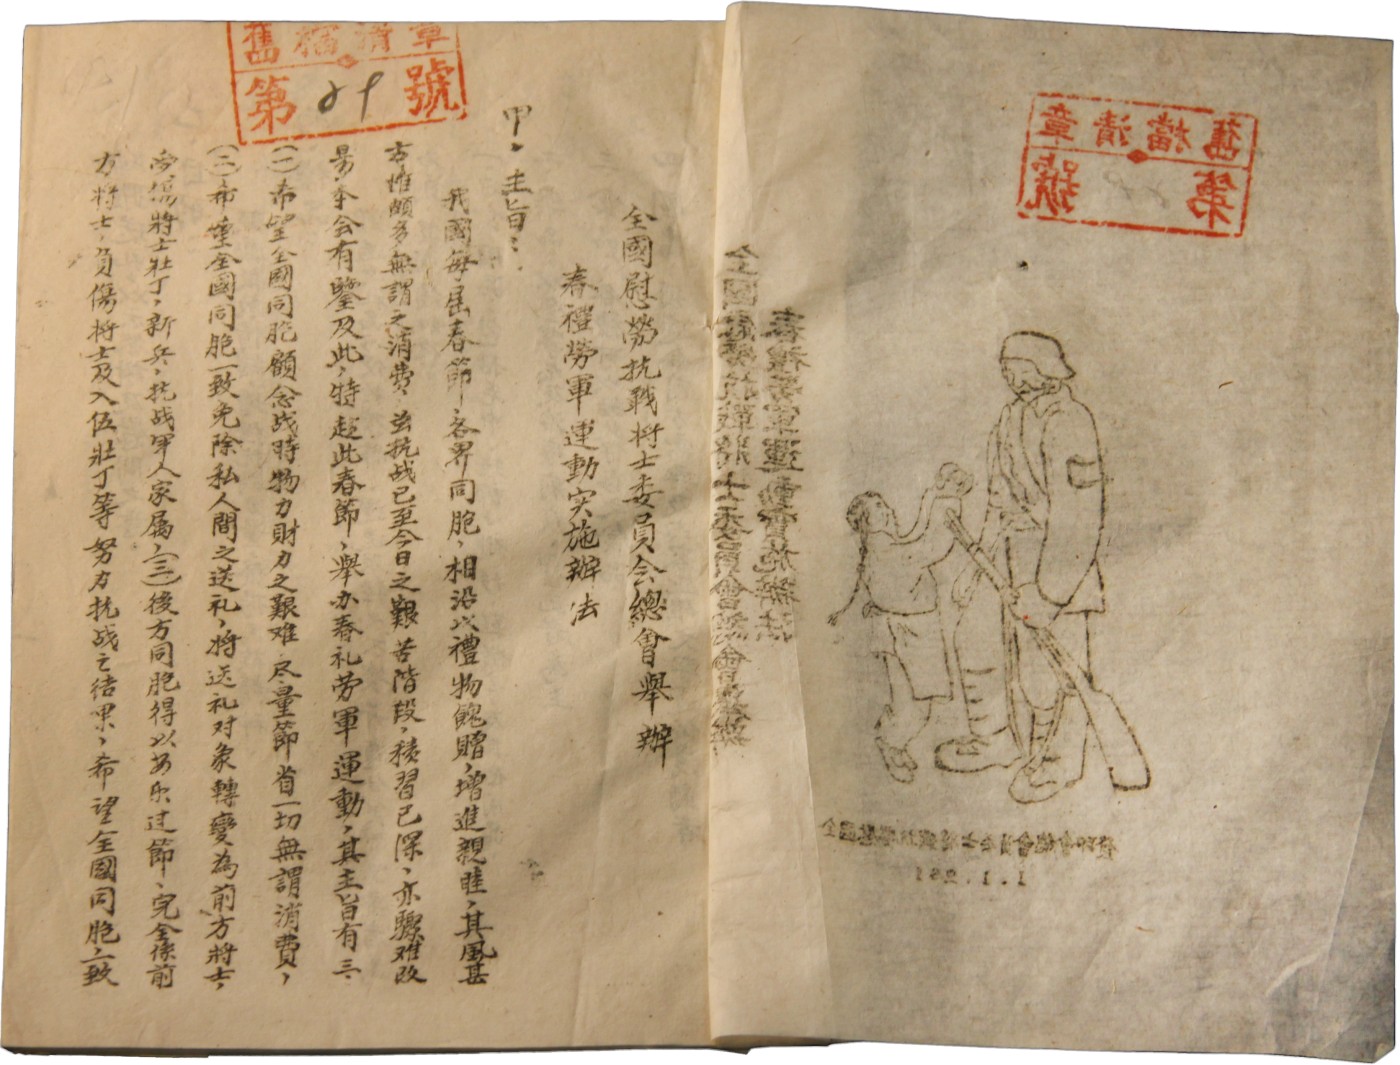 舊檔清章
第29號
全國慰勞抗戰將士委員会總會舉辦
春禮勞軍運動实施辦法
甲、主旨：
我國每屆春節、各界同胞，相沿以禮物餽贈，增進親睦，其風甚
古惟頗多無謂之消費，茲抗战已至今日之艱苦階段，積習已深，亦驟难改
易，本会有鑒及此，特趁此春節，舉办春礼劳軍運動，其主旨有三、
(一)希望全國同胞顧念战時物力財力之艱难尽量節省一切無謂消費，
(二)希望全國同胞一致免除私人間之送礼，将送礼对象轉變為前方將士，
受傷將士壯丁，新兵，抗战軍人家属，(三)後方同胞得以安乐过節，完全係前
方將士，負傷将士及入伍壯丁等努力抗战之结果，希望全國同胞，一致
舊檔清章
第 號
春禮勞軍運動實施辦法
1.1.